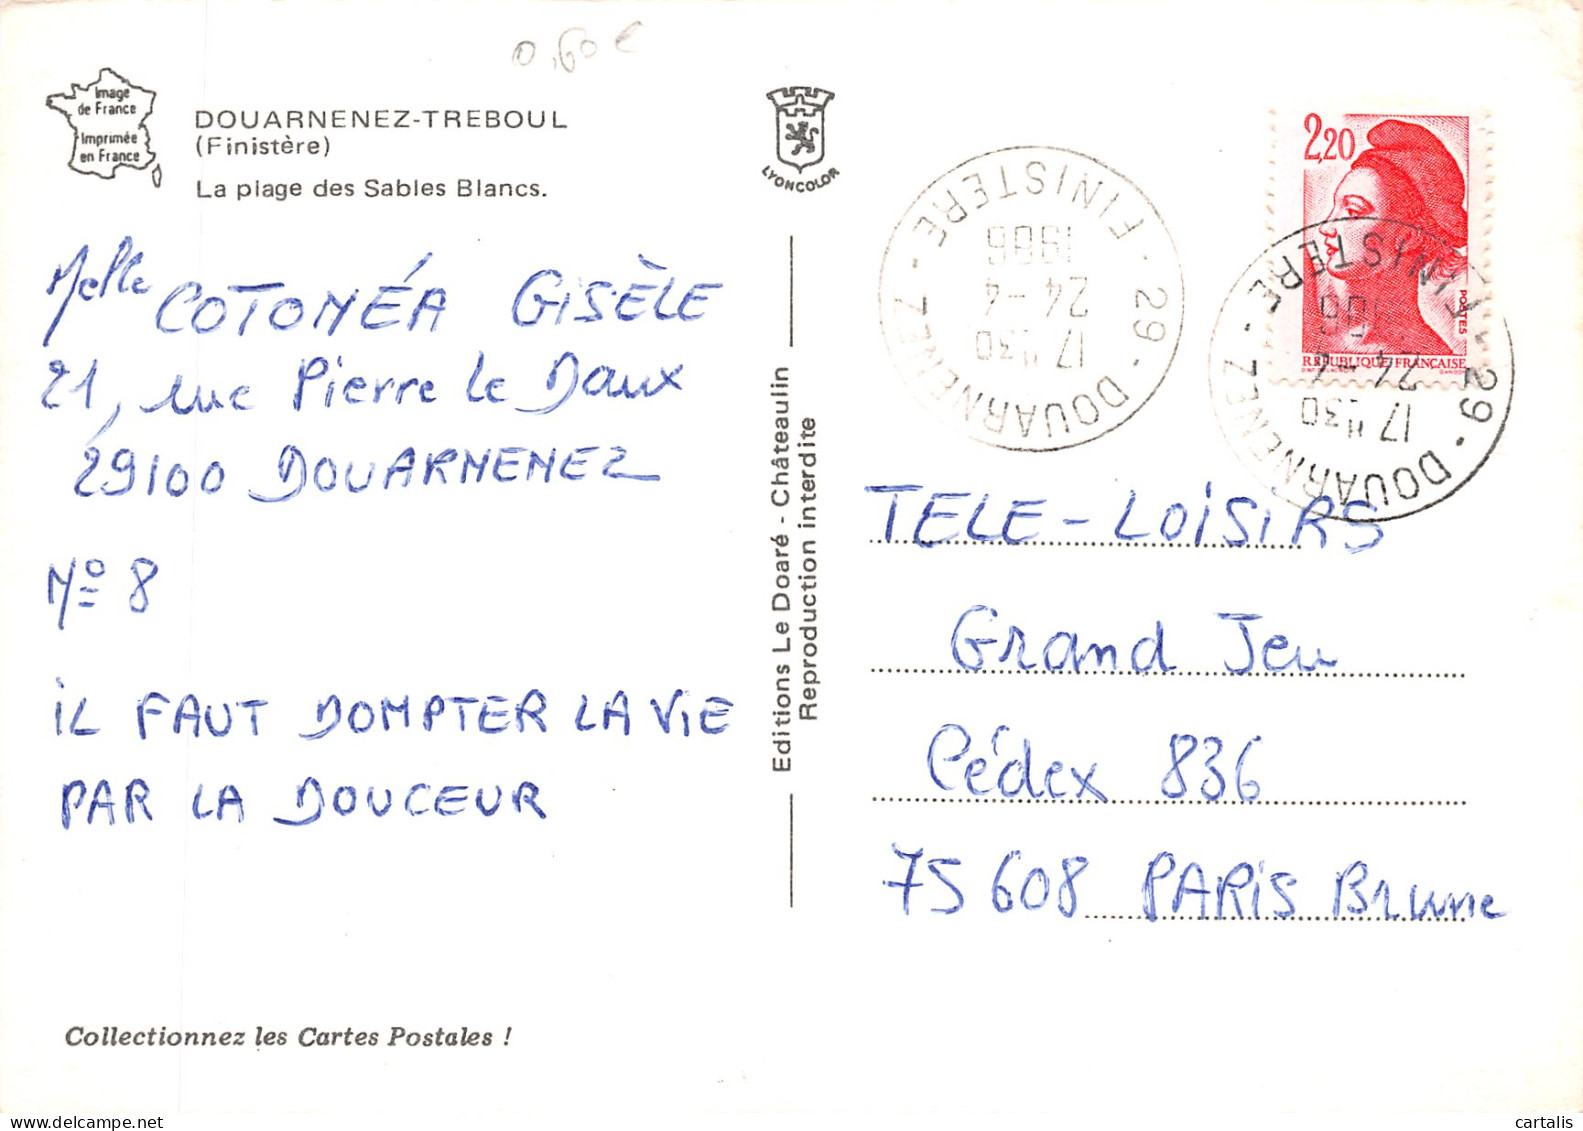 0,60 €
Image
de France
Imprimée
en France
DOUARNENEZ-TREBOUL
(Finistère)
La plage des Sables Blancs.
Melle COTONÉA GISÈLE
21, rue Pierre Le Daux
29100 DOUARNENEZ
Nº 8
iL FAUT DOMPTER LA ViE
PAR LA DOUCEUR
Collectionnez les Cartes Postales !
LYONCOLOR
Editions Le Doaré - Châteaulin
Reproduction interdite
29 - DOUARNENEZ - FINISTERE -
17 H 30
24 - 4
1986
2,20
POSTES
REPUBLIQUE FRANÇAISE
29 - DOUARNENEZ - FINISTERE
17 H 30
24 - 4
TELE - LOiSiRS
Grand Jeu
Cédex 836
75608 PARiS Brune
cartalis